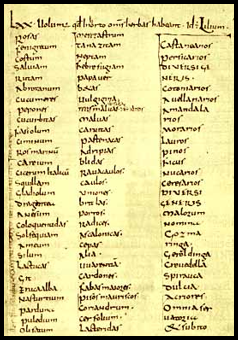 LXX Volumus quod in horto omnes herbas habeant. Id est Lilium.
Rosas
Fenigrecum
Costum
Salviam
Rutam
Abrotanum
Cucumeres
pepones
cucurbitas
Fasiolum
ciminum
Ros marinum
Careium
Cicerum Italicum
Squillam
Gladiolum
Dragantea
Anesum
Coloquentidas
Solsequiam
Ameum
Silum
Lactucas
Git
Nasturtium
parduna
puledium
Olisatum
mentastrum
Tanazitam
Neptam
Febrefugiam
papaver
betas
Vulgigina
malvas
Carruitas
pastenacas
Adripias
blidas
Ravacaulos
caulos
Uniones
britlas
porros
radices
ascalonicas
cepas
Alia
Cardones
Fabas maiores
pisos mauriscos
Coriandrum
cerfolium
Lacteridas
Castanarios
Persicarios
DIVERSI GE
NERIS
Cotoniarios
Avellanarios
Amandala
rios
Morarios
Lauros
pinos
Ficus
Nucarios
Ceresarios
DIVERSI
GENERIS
Malorum
Nomina
Gozma
ringa
Geroldinga
Crevedella
Spirauca
Dulcia
Acriores
Omnia ser
vatoria
& subito